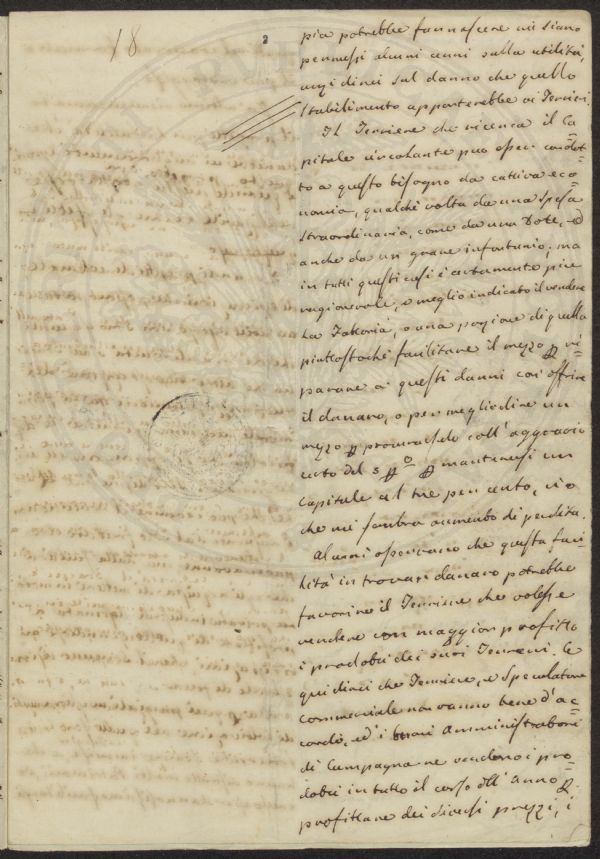 18
2
pia potrebbe far nascere mi siano
permessi alcuni cenni sulla utilità,
anzi dirci sul danno che quello
stabilimento apporterebbe ai Terrieri.
Il Terriere che ricerca il Ca=
pitale circolante può esser condot=
to a questo bisogno da cattiva eco=
nomia, qualche volta da una spesa
straordinaria, come da una Dote, ed
anche da un grave infortunio; ma
in tutti questi casi è certamente più
ragionevole, e meglio indicato il vendere
la Fattoria, o una porzione di quella
piuttostochè facilitare il mezzo p ri=
parare a questi danni con offrire
il danaro, o per meglio dire un
mezzo p procurarselo coll'aggravio
certo del 5 p % p mantenersi un
Capitale al tre per cento, ciò
che mi sembra aumento di perdita.
Alcuni osservano che questa faci=
lità in trovar danaro potrebbe
favorire il Terriere che volesse
vendere con maggior profitto
i prodotti dei suoi Terreni. E
qui dirci che Terriere, e Speculatore
Commerciale non vanno bene d'ac=
cordo, ed i buoni Amministratori
di Campagna ne vendono i pro=
dotti in tutto il corso dell'Anno p
profittare dei diversi prezzi, i